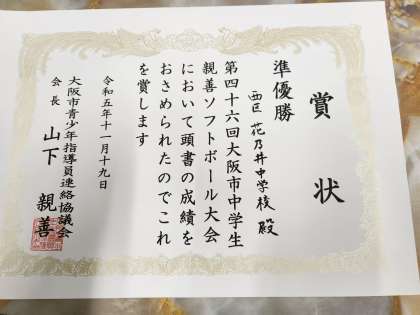 賞状
準優勝
西区 花乃井中学校 殿
第四十六回大阪市中学生
親善ソフトボール大会
において頭書の成績を
おさめられたのでこれ
を賞します
令和五年十一月十九日
大阪市青少年指導員連絡協議会
会長 山下 親善